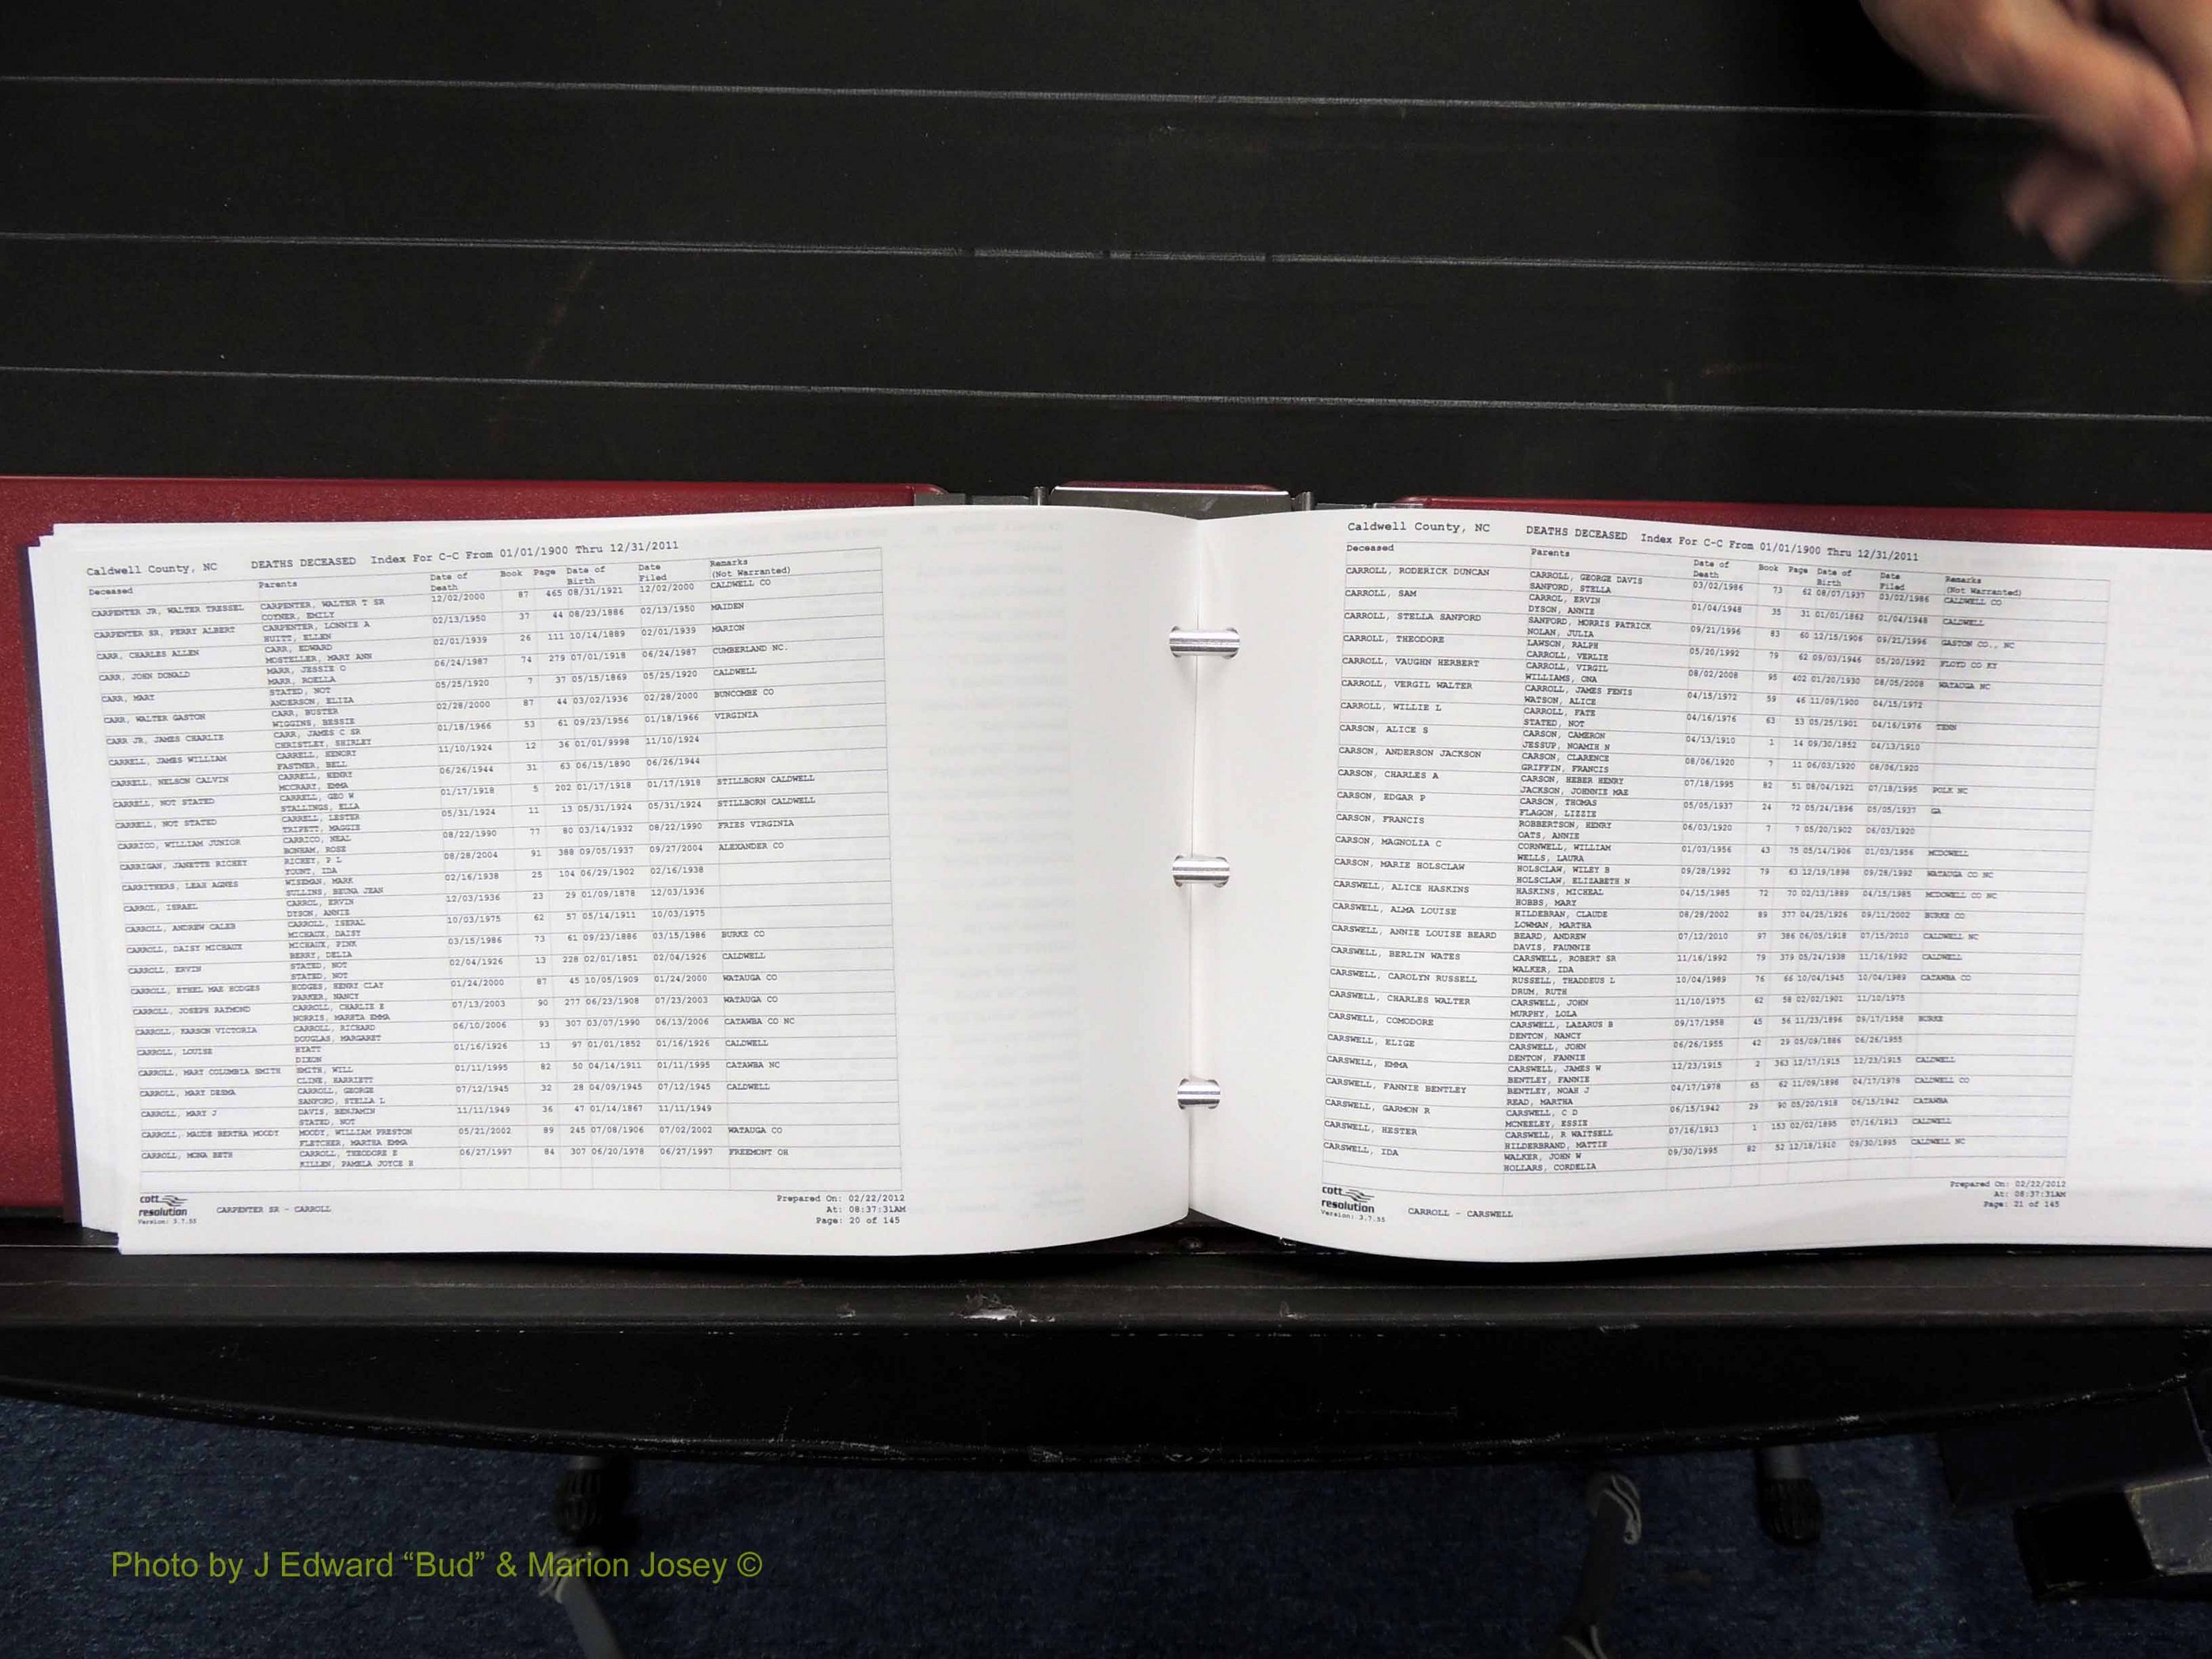 Caldwell County, NC DEATHS DECEASED Index For C-C From 01/01/1900 Thru 12/31/2011
Deceased Parents Date of Death Book Page Date of Birth Date Filed Remarks (Not Warranted)
CARPENTER JR, WALTER TRESSEL CARPENTER, WALTER T SR 12/02/2000 87 465 08/31/1921 12/02/2000 CALDWELL CO
COYNER, EMILY
CARPENTER SR, PERRY ALBERT CARPENTER, LONNIE A 02/13/1950 37 44 08/23/1886 02/13/1950 MAIDEN
HUITT, ELLEN
CARR, CHARLES ALLEN CARR, EDWARD 02/01/1939 26 111 10/14/1889 02/01/1939 MARION
MOSTELLER, MARY ANN
CARR, JOHN DONALD MARR, JESSIE O 06/24/1987 74 279 07/01/1918 06/24/1987 CUMBERLAND NC.
MARR, ROELLA
CARR, MARY STATED, NOT 05/25/1920 7 37 05/15/1869 05/25/1920 CALDWELL
ANDERSON, ELIZA
CARR, WALTER GASTON CARR, BUSTER 02/28/2000 87 44 03/02/1936 02/28/2000 BUNCOMBE CO
WIGGINS, BESSIE
CARR JR, JAMES CHARLIE CARR, JAMES C SR 01/18/1966 53 61 09/23/1956 01/18/1966 VIRGINIA
CHRISTLEY, SHIRLEY
CARRELL, JAMES WILLIAM CARRELL, HENORY 11/10/1924 12 36 01/01/9998 11/10/1924
FASTNER, BELL
CARRELL, NELSON CALVIN CARRELL, HENRY 06/26/1944 31 63 06/15/1890 06/26/1944
MCCRARY, EMMA
CARRELL, NOT STATED CARRELL, GEO W 01/17/1918 5 202 01/17/1918 01/17/1918 STILLBORN CALDWELL
STALLINGS, ELLA
CARRELL, NOT STATED CARRELL, LESTER 05/31/1924 11 13 05/31/1924 05/31/1924 STILLBORN CALDWELL
TRIPETT, MAGGIE
CARRICO, WILLIAM JUNIOR CARRICO, NEAL 08/22/1990 77 80 03/14/1932 08/22/1990 FRIES VIRGINIA
BONHAM, ROSE
CARRIGAN, JANETTE RICHEY RICHEY, P L 08/28/2004 91 388 09/05/1937 09/27/2004 ALEXANDER CO
YOUNT, IDA
CARRITHERS, LEAH AGNES WISEMAN, MARK 02/16/1938 25 104 06/29/1902 02/16/1938
SULLINS, BEUNA JEAN
CARROL, ISRAEL CARROL, ERVIN 12/03/1936 23 29 01/09/1878 12/03/1936
DYSON, ANNIE
CARROLL, ANDREW CALEB CARROLL, ISERAL 10/03/1975 62 57 05/14/1911 10/03/1975
MICHAUX, DAISY
CARROLL, DAISY MICHAUX MICHAUX, PINK 03/15/1986 73 61 09/23/1886 03/15/1986 BURKE CO
BERRY, DELIA
CARROLL, ERVIN STATED, NOT 02/04/1926 13 228 02/01/1851 02/04/1926 CALDWELL
STATED, NOT
CARROLL, ETHEL MAE HODGES HODGES, HENRY CLAY 01/24/2000 87 45 10/05/1909 01/24/2000 WATAUGA CO
PARKER, NANCY
CARROLL, JOSEPH RAYMOND CARROLL, CHARLIE E 07/13/2003 90 277 06/23/1908 07/23/2003 WATAUGA CO
NORRIS, MARETA EMMA
CARROLL, KARSON VICTORIA CARROLL, RICHARD 06/10/2006 93 307 03/07/1990 06/13/2006 CATAWBA CO NC
DOUGLAS, MARGARET
CARROLL, LOUISE HYATT 01/16/1926 13 97 01/01/1852 01/16/1926 CALDWELL
DIXON
CARROLL, MARY COLUMBIA SMITH SMITH, WILL 01/11/1995 82 50 04/14/1911 01/11/1995 CATAWBA NC
CLINE, HARRIETT
CARROLL, MARY DESMA CARROLL, GEORGE 07/12/1945 32 28 04/09/1945 07/12/1945 CALDWELL
SANFORD, STELLA L
CARROLL, MARY J DAVIS, BENJAMIN 11/11/1949 36 47 01/14/1867 11/11/1949
STATED, NOT
CARROLL, MAUDE BERTHA MOODY MOODY, WILLIAM PRESTON 05/21/2002 89 245 07/08/1906 07/02/2002 WATAUGA CO
FLETCHER, MARTHA EMMA
CARROLL, MONA BETH CARROLL, THEODORE E 06/27/1997 84 307 06/20/1978 06/27/1997 FREEMONT OH
KILLEN, PAMELA JOYCE H
cott resolution
Version: 3.7.55
CARPENTER SR - CARROLL
Prepared On: 02/22/2012
At: 08:37:31AM
Page: 20 of 145
Caldwell County, NC DEATHS DECEASED Index For C-C From 01/01/1900 Thru 12/31/2011
Deceased Parents Date of Death Book Page Date of Birth Date Filed Remarks (Not Warranted)
CARROLL, RODERICK DUNCAN CARROLL, GEORGE DAVIS 03/02/1986 73 62 08/07/1937 03/02/1986 CALDWELL CO
SANFORD, STELLA
CARROLL, SAM CARROL, ERVIN 01/04/1948 35 31 01/01/1862 01/04/1948 CALDWELL
DYSON, ANNIE
CARROLL, STELLA SANFORD SANFORD, MORRIS PATRICK 09/21/1996 83 60 12/15/1906 09/21/1996 GASTON CO., NC
NOLAN, JULIA
CARROLL, THEODORE LAWSON, RALPH 05/20/1992 79 62 09/03/1946 05/20/1992 FLOYD CO KY
CARROLL, VERLIE
CARROLL, VAUGHN HERBERT CARROLL, VIRGIL 08/02/2008 95 402 01/20/1930 08/05/2008 WATAUGA NC
WILLIAMS, ONA
CARROLL, VERGIL WALTER CARROLL, JAMES FENIS 04/15/1972 59 46 11/09/1900 04/15/1972
WATSON, ALICE
CARROLL, WILLIE L CARROLL, FATE 04/16/1976 63 53 05/25/1901 04/16/1976 TENN
STATED, NOT
CARSON, ALICE S CARSON, CAMERON 04/13/1910 1 14 09/30/1852 04/13/1910
JESSUP, NOAMIH N
CARSON, ANDERSON JACKSON CARSON, CLARENCE 08/06/1920 7 11 06/03/1920 08/06/1920
GRIFFIN, FRANCIS
CARSON, CHARLES A CARSON, HEBER HENRY 07/18/1995 82 51 08/04/1921 07/18/1995 POLK NC
JACKSON, JOHNNIE MAE
CARSON, EDGAR P CARSON, THOMAS 05/05/1937 24 72 05/24/1896 05/05/1937 GA
FLAGON, LIZZIE
CARSON, FRANCIS ROBBERTSON, HENRY 06/03/1920 7 7 05/20/1902 06/03/1920
OATS, ANNIE
CARSON, MAGNOLIA C CORNWELL, WILLIAM 01/03/1956 43 75 05/14/1906 01/03/1956 MCDOWELL
WELLS, LAURA
CARSON, MARIE HOLSCLAW HOLSCLAW, WILEY B 09/28/1992 79 63 12/19/1898 09/28/1992 WATAUGA CO NC
HOLSCLAW, ELIZABETH N
CARSWELL, ALICE HASKINS HASKINS, MICHEAL 04/15/1985 72 70 02/13/1889 04/15/1985 MCDOWELL CO NC
HOBBS, MARY
CARSWELL, ALMA LOUISE HILDEBRAN, CLAUDE 08/28/2002 89 377 04/25/1926 09/11/2002 BURKE CO
LOWMAN, MARTHA
CARSWELL, ANNIE LOUISE BEARD BEARD, ANDREW 07/12/2010 97 386 06/05/1918 07/15/2010 CALDWELL NC
DAVIS, FAUNNIE
CARSWELL, BERLIN WATES CARSWELL, ROBERT SR 11/16/1992 79 379 05/24/1938 11/16/1992 CALDWELL
WALKER, IDA
CARSWELL, CAROLYN RUSSELL RUSSELL, THADDEUS L 10/04/1989 76 66 10/04/1945 10/04/1989 CATAWBA CO
DRUM, RUTH
CARSWELL, CHARLES WALTER CARSWELL, JOHN 11/10/1975 62 58 02/02/1901 11/10/1975
MURPHY, LOLA
CARSWELL, COMODORE CARSWELL, LAZARUS B 09/17/1958 45 56 11/23/1896 09/17/1958 BURKE
DENTON, NANCY
CARSWELL, ELIGE CARSWELL, JOHN 06/26/1955 42 29 05/09/1886 06/26/1955
DENTON, FANNIE
CARSWELL, EMMA CARSWELL, JAMES W 12/23/1915 2 363 12/17/1915 12/23/1915 CALDWELL
BENTLEY, FANNIE
CARSWELL, FANNIE BENTLEY BENTLEY, NOAH J 04/17/1978 65 62 11/09/1898 04/17/1978 CALDWELL CO
READ, MARTHA
CARSWELL, GARMON R CARSWELL, C D 06/15/1942 29 90 05/20/1918 06/15/1942 CATAWBA
MCNEELEY, ESSIE
CARSWELL, HESTER CARSWELL, R WAITSELL 07/16/1913 1 153 02/02/1895 07/16/1913 CALDWELL
HILDERBRAND, MATTIE
CARSWELL, IDA WALKER, JOHN W 09/30/1995 82 52 12/18/1910 09/30/1995 CALDWELL NC
HOLLARS, CORDELIA
cott resolution
Version: 3.7.55
CARROLL - CARSWELL
Prepared On: 02/22/2012
At: 08:37:31AM
Page: 21 of 145
Photo by J Edward “Bud” & Marion Josey ©